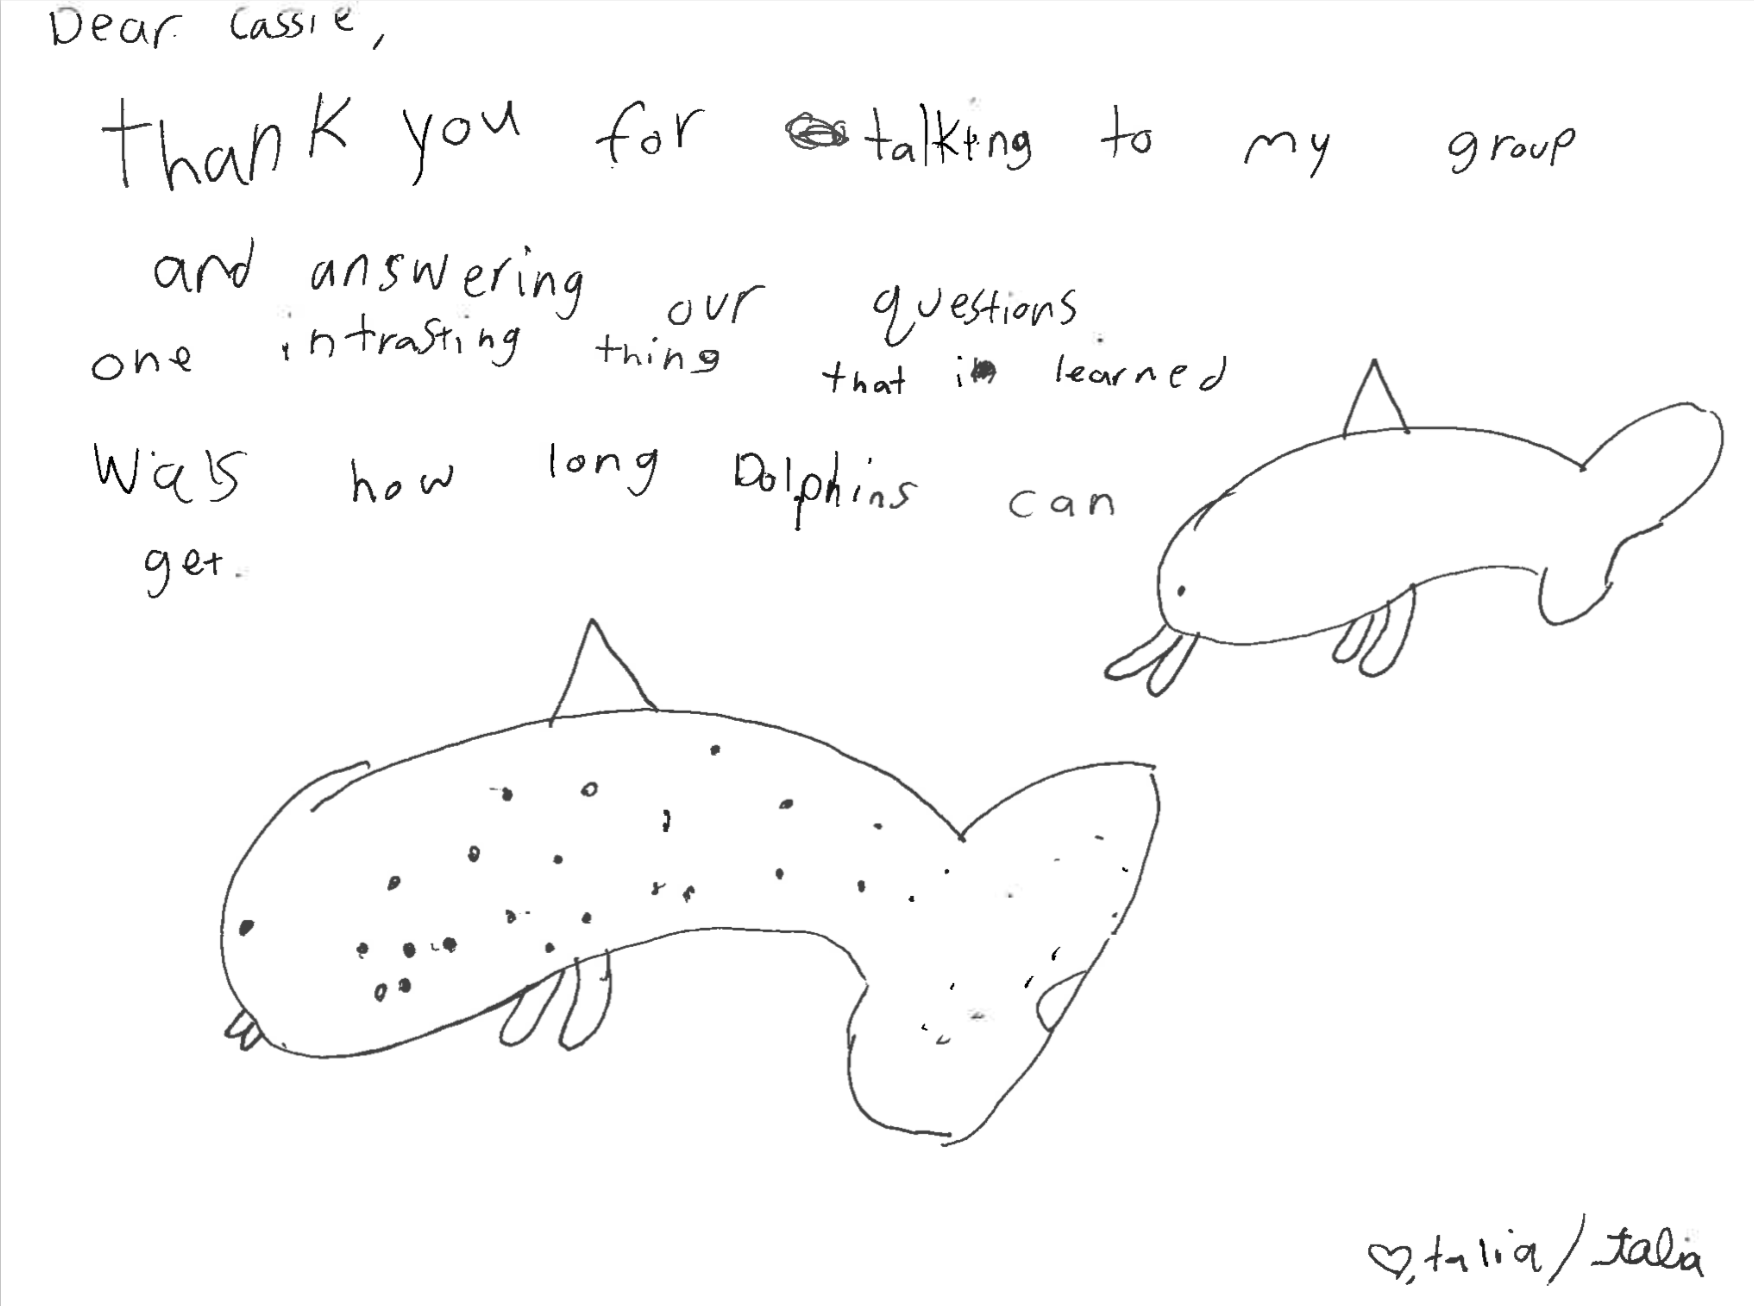 Dear Cassie,
thank you for talking to my group
and answering our questions
one intrasting thing that i learned
Was how long Dolphins can
get.
♡, talia / talia